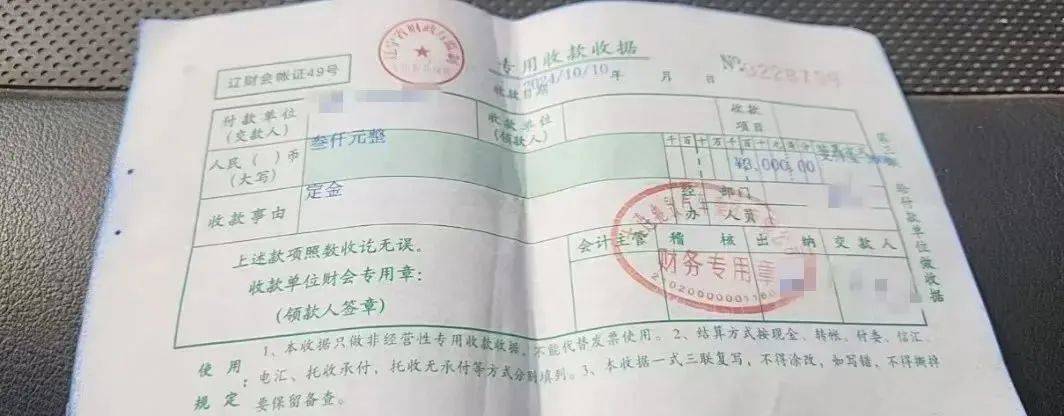 专用收款收据
辽财会帐证49号
收款日期 2024/10/10 年 月 日
No
付款单位
(交款人)
收款单位
(领款人)
收款
项目
人民( )币
(大写)
叁仟元整
千百十万千百十元角分
¥3,000.00
收款事由
定金
经办
部门
人员
上述款项照数收讫无误。
收款单位财会专用章:
(领款人签章)
会计主管
稽核
出纳
交款人
财务专用章
给付款单位做收据
使用规定:
1、本收据只做非经营性专用收款收据,不能代替发票使用。2、结算方式按现金、转帐、付委、信汇、
电汇、托收承付,托收无承付等方式分别填列。3、本收据一式三联复写,不得涂改,如写错,不得撕掉
要保留备查。